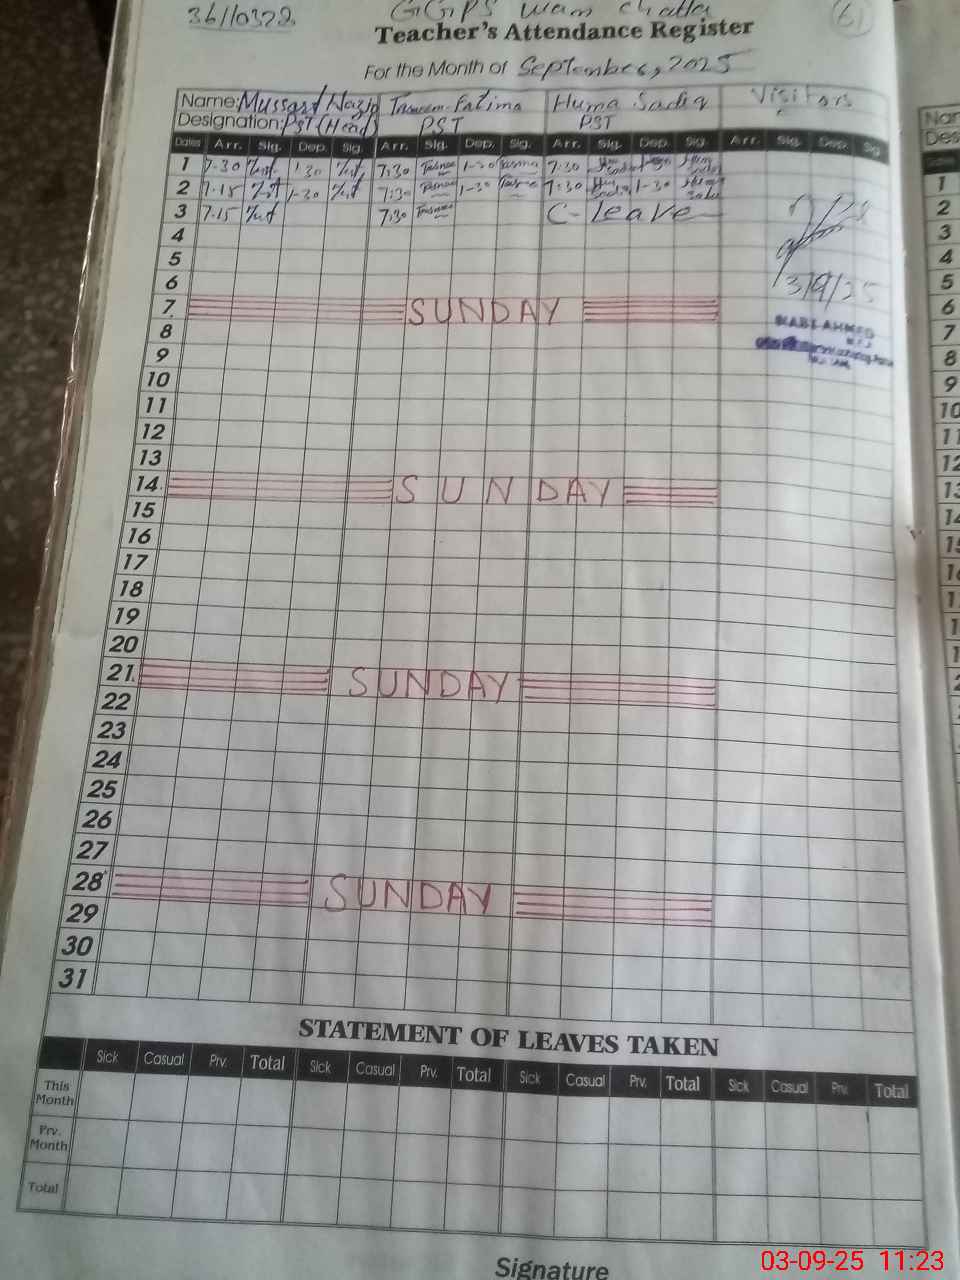 36110322 GGPS Wara Chatta 61
Teacher's Attendance Register
For the Month of September, 2025
Name: Mussarat Nazir Tasneem Fatima Huma Sadiq Visitors
Designation: PST (Head) PST PST
Dates Arr. Sig. Dep. Sig. Arr. Sig. Dep. Sig. Arr. Sig. Dep. Sig. Arr. Sig. Dep. Sig
1 7-30 1:30 7:30 1-30 7:30
2 7-15 1-30 7:30 1-30 7:30 1-30
3 7-15 7:30 C-leave
4
5
6
7 SUNDAY 3/9/25
8 AHMED
9
10
11
12
13
14 SUNDAY
15
16
17
18
19
20
21 SUNDAY
22
23
24
25
26
27
28 SUNDAY
29
30
31
STATEMENT OF LEAVES TAKEN
Sick Casual Prv. Total Sick Casual Prv. Total Sick Casual Prv. Total Sick Casual Prv. Total
This Month
Prv. Month
Total
Signature
03-09-25 11:23